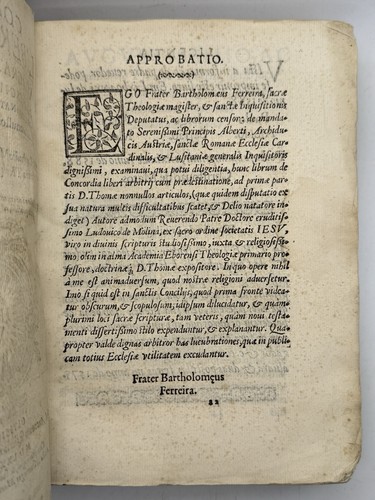 APPROBATIO.
EGO Frater Bartholomeus Ferreira, sacræ
Theologiæ magister, & sanctæ Inquisitionis
Deputatus, ac librorum censor; de manda-
to Serenissimi Principis Alberti, Archidu-
cis Austriæ, sanctæ Romanæ Ecclesiæ Car-
dinalis, & Lusitaniæ generalis Inquisitoris
dignissimi, examinaui, qua potui diligentia, hunc librum de
Concordia liberi arbitrij cum prædestinatione, ad primæ partis
D. Thomæ nonnullos articulos, (quæ quidem disputatio ex
sua natura multis difficultatibus scatet, & Delio natatore in-
diget) Autore admodum Reuerendo Patre Doctore eruditis-
simo Ludouico de Molina, ex sacro ordine societatis IESV,
viro in diuinis scripturis studiosissimo, iuxta & religiosissi-
mo, olim in alma Academia Eborensi Theologiæ primario pro-
fessore, doctrinæq; D. Thomæ expositore. In quo opere nihil
à me est animaduersum, quod nostræ religioni aduersetur.
Imo si quid est in sanctis Concilijs, quod prima fronte videa-
tur obscurum, & scopulosum, id ipsum dilucidatur, & quàm
plurimi loci sacræ scripturæ, tam veteris, quàm noui testa-
menti dissertissimo stilo expenduntur, & explanantur. Qua-
propter valde dignas arbitror has lucubrationes, quæ in publi-
cam totius Ecclesiæ vtilitatem excudantur.
Frater Bartholomęus
Ferreira.